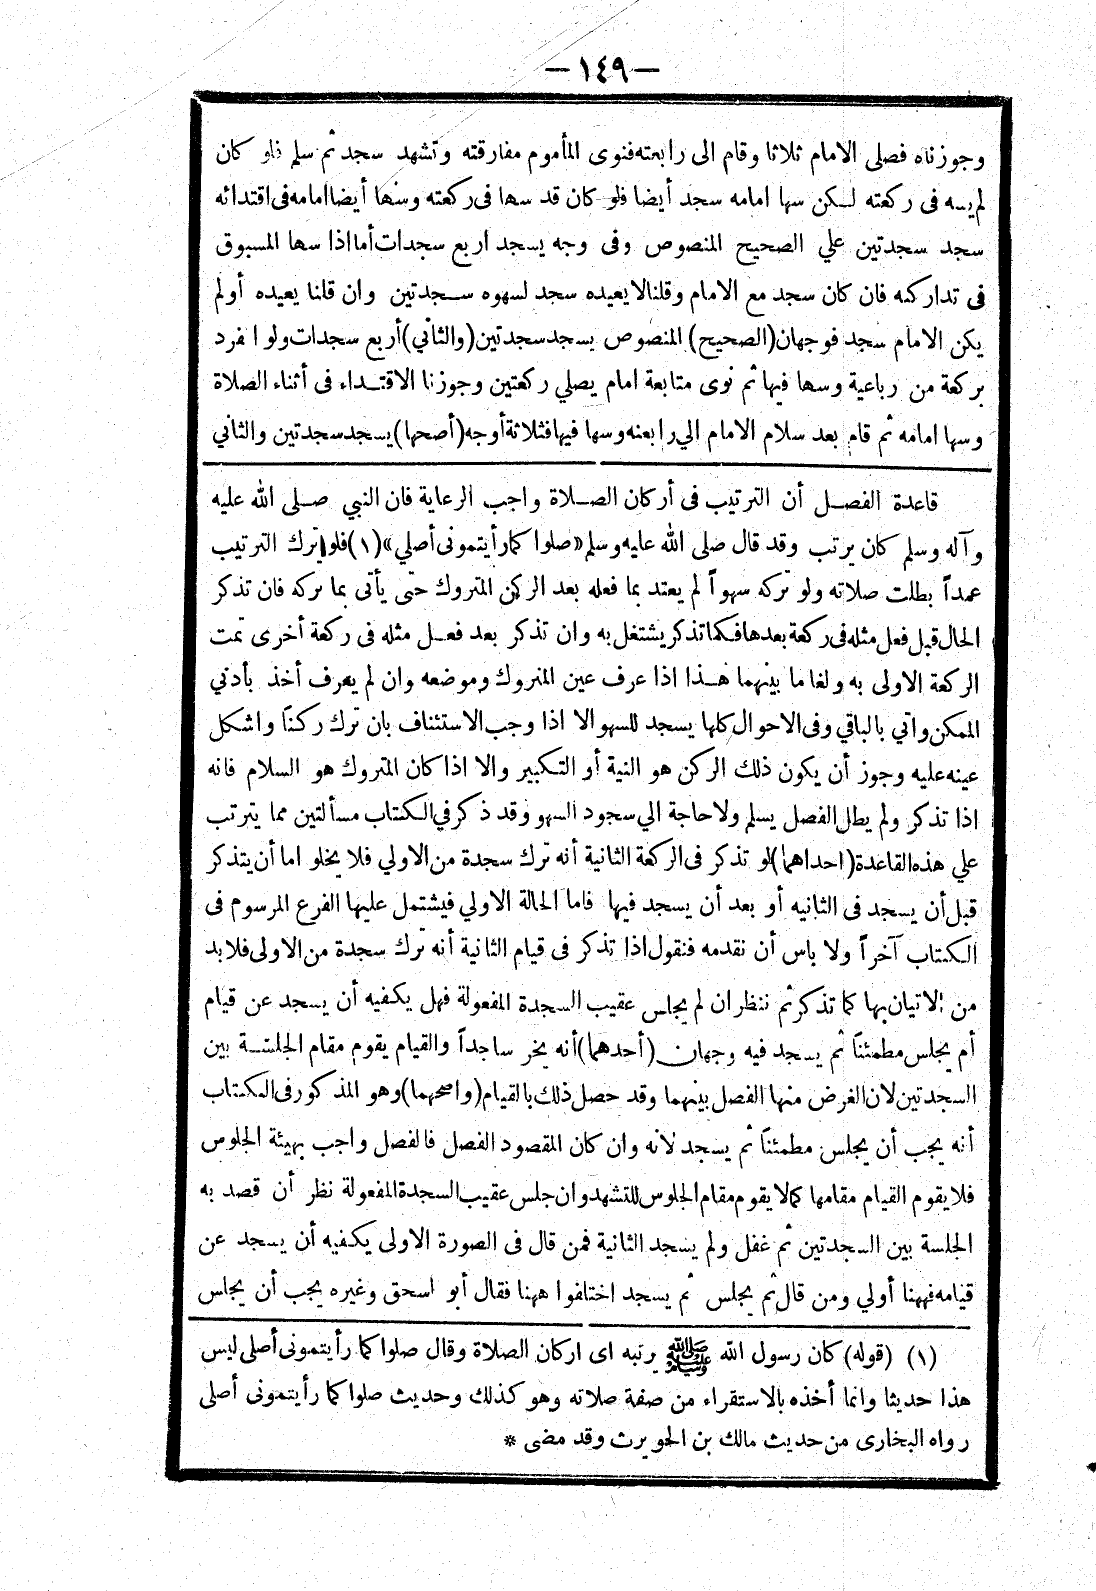 — ١٤٩ —
وجوزناه فصلى الامام ثلاثا وقام الى رابعته فنوى المأموم مفارقته وتشهد سجد ثم سلم فلو كان
لم يسه فى ركعته لكن سها امامه سجد أيضا فلو كان قد سها فى ركعته وسها أيضا امامه فى اقتدائه
سجد سجدتين علي الصحيح المنصوص وفى وجه يسجد اربع سجدات أما اذا سها المسبوق
فى تداركه فان كان سجد مع الامام وقلنا لا يعيده سجد لسهوه سجدتين وان قلنا يعيده أو لم
يكن الامام سجد فوجهان (الصحيح) المنصوص يسجد سجدتين (والثاني) أربع سجدات ولو انفرد
بركعة من رباعية وسها فيها ثم نوى متابعة امام يصلي ركعتين وجوزنا الاقتداء فى أثناء الصلاة
وسها امامه ثم قام بعد سلام الامام الي رابعته وسها فيها فثلاثة أوجه (أصحها) يسجد سجدتين والثاني
قاعدة الفصل أن الترتيب فى أركان الصلاة واجب الرعاية فان النبي صلى الله عليه
وآله وسلم كان يرتب وقد قال صلى الله عليه وسلم «صلوا كما رأيتمونى أصلي» (١) فلو ترك الترتيب
عمداً بطلت صلاته ولو تركه سهواً لم يعتد بما فعله بعد الركن المتروك حتى يأتى بما تركه فان تذكر
الحال قبل فعل مثله فى ركعة بعدها فكما تذكر يشتغل به وان تذكر بعد فعل مثله فى ركعة أخرى تمت
الركعة الاولى به ولغا ما بينهما هذا اذا عرف عين المتروك وموضعه وان لم يعرف أخذ بأدني
الممكن وأتي بالباقي وفى الاحوال كلها يسجد للسهو الا اذا وجب الاستئناف بان ترك ركناً واشكل
عينه عليه وجوز أن يكون ذلك الركن هو النية أو التكبير والا اذا كان المتروك هو السلام فانه
اذا تذكر ولم يطل الفصل يسلم ولا حاجة الي سجود السهو وقد ذكر في الكتاب مسألتين مما يترتب
علي هذه القاعدة (احداهما) لو تذكر فى الركعة الثانية أنه ترك سجدة من الاولي فلا يخلو اما أن يتذكر
قبل أن يسجد فى الثانيه أو بعد أن يسجد فيها فاما الحالة الاولي فيشتمل عليها الفرع المرسوم فى
الكتاب آخراً ولا باس أن نقدمه فنقول اذا تذكر فى قيام الثانية أنه ترك سجدة من الاولى فلا بد
من الاتيان بها كما تذكر ثم ننظر ان لم يجلس عقيب السجدة المفعولة فهل يكفيه أن يسجد عن قيام
أم يجلس مطمئناً ثم يسجد فيه وجهان (أحدهما) أنه يخر ساجداً والقيام يقوم مقام الجلسة بين
السجدتين لان الغرض منها الفصل بينهما وقد حصل ذلك بالقيام (واصحهما) وهو المذكور فى الكتاب
أنه يجب أن يجلس مطمئناً ثم يسجد لانه وان كان المقصود الفصل فالفصل واجب بهيئة الجلوس
فلا يقوم القيام مقامها كما لا يقوم مقام الجلوس للتشهد وان جلس عقيب السجدة المفعولة نظر أن قصد به
الجلسة بين السجدتين ثم غفل ولم يسجد الثانية فمن قال فى الصورة الاولى يكفيه أن يسجد عن
قيامه فههنا أولي ومن قال ثم يجلس ثم يسجد اختلفوا ههنا فقال أبو اسحق وغيره يجب أن يجلس
(١) (قوله) كان رسول الله ﷺ يرتبه اى اركان الصلاة وقال صلوا كما رأيتمونى أصلى ليس
هذا حديثا وانما أخذه بالاستقراء من صفة صلاته وهو كذلك وحديث صلوا كما رأيتمونى أصلى
رواه البخارى من حديث مالك بن الحويرث وقد مضى *